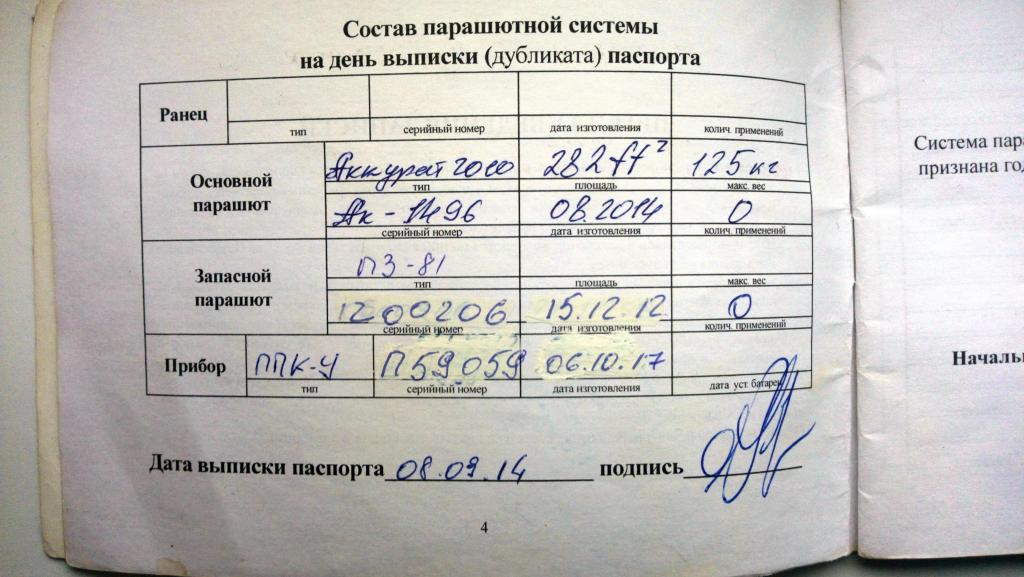 Состав парашютной системы
на день выписки (дубликата) паспорта
Ранец
тип серийный номер дата изготовления колич. применений
Основной парашют
Аккурат 282 ft² 125 кг
тип площадь макс. вес
Ак- 08.2014 0
серийный номер дата изготовления колич. применений
Запасной парашют
ПЗ-81
тип площадь макс. вес
1200206 15.12.12 0
серийный номер дата изготовления колич. применений
Прибор ППК-У П59059 06.10.17
тип серийный номер дата изготовления дата уст. батареи
Дата выписки паспорта 08.09.14 подпись
4
Система
признана